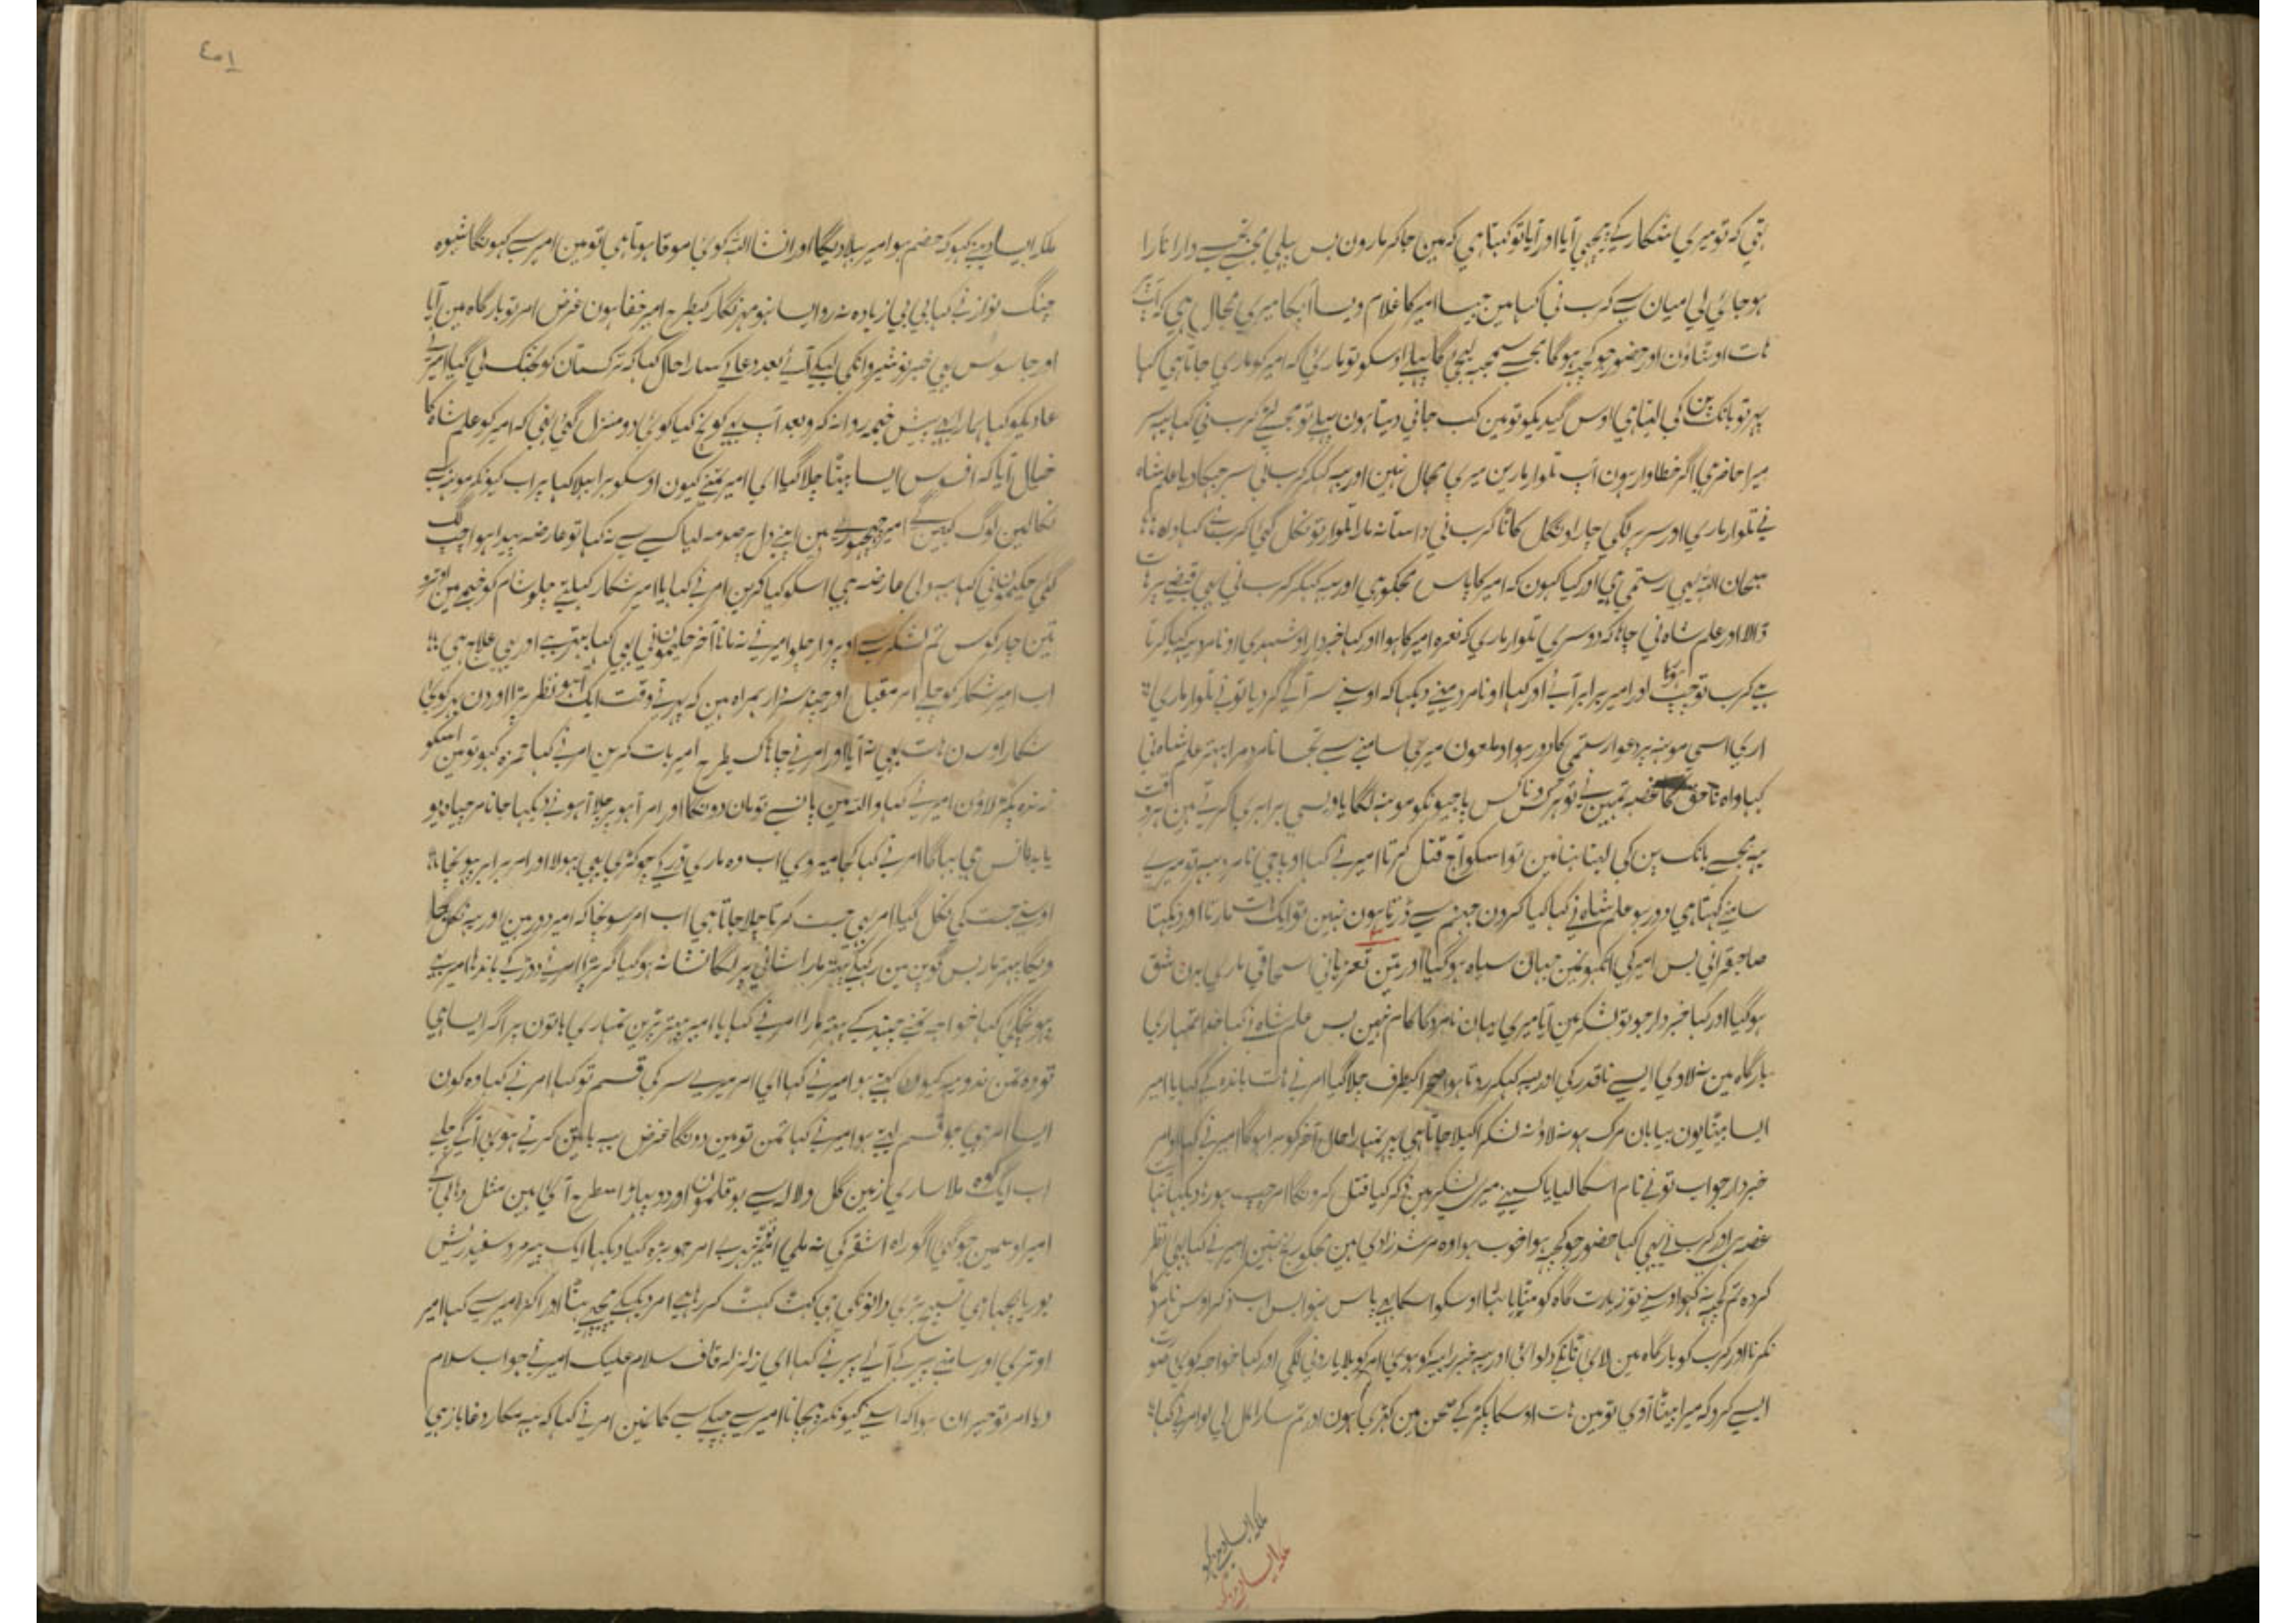 تہی کہ تو میری شکار کے پیچہی آیا اور آیا تو کہتا ہی کہ مین جاکر مارون بس پہلی مجہسے دارا نارا
ہو جائی لی میان سے کرب نی کہا مین جیسا امیر کا غلام ویسا آپکا میری مجال ہی کہ آپ پر
ہات اوٹہاؤن اور حضور جو کچہہ ہوگا مجسے سمجہہ لیجی گا پہلے اوسکو تو ماریٔی کہ امیر کو ماری جاتا ہی کہا
پہر تو بانک پن کی لیتا ہی اوس گیدیکو تو مین کب جانی دیتا ہون پہلے تو مجسے کرب نی کہا یہہ سر
میرا حاضر ہی اگر خطاوار ہون آپ تلوار مارین میری مجال نہین اور یہہ کہکر کرب نی سر جہکا دیا علم شاہ
نے تلوار ماری اور سر پر لگی چار اونگل کاٹا کرب نی دستانہ مارا تلوار تو نکل گئی کرب نے کہا واہ
سبحان اللہ یہی رستمی ہی اور کیا کہون کہ امیر کا پاس مجکو ہی اور یہہ کہکر کرب نی بہی قبضے پر ہات
ڈالا اور علم شاہ نی چاہا کہ دوسری تلوار ماری کہ نعرہ امیر کا ہوا اور کہا خبردار او شہدی او نامرد یہہ کیا کرتا
ہے کرب تو چپ ہوا اور امیر برابر آئے اور کہا او نامرد مینے دیکہا کہ اوسنے سر آگے کر دیا تو نے تلوار ماری
اری اسی مونہہ پر دعوا رستمی کا دور ہو او ملعون میری سامنے سے تجسا نامرد مرا بہتر علم شاہ نی
کہا واہ ناحق کا غصہ تمہین نے تو ہر کس و ناکس پاجیونکو مونہہ لگایا وہی برابری کرتے ہین ہر وقت
یہہ مجسے بانک پن کی لیتا تہا مین تو اسکو آج قتل کرتا امیر نے کہا او پاجی نامرد یہہ تو میرے
سامنے کہتا ہی دور ہو علم شاہ نے کہا کیا کرون جہنم سے ڈرتا ہون نہین تو ایک ہات مارتا اور دیکہتا
صاحبقرانی بس امیر کی انکہونمین جہان سیاہ ہوگیا اور تین نعرہ زبانی اسحاقی ماری ہرن شق
ہو گیا اور کہا خبردار جو تو لشکر مین آیا میری یہان نامرد کا کام نہین بس علم شاہ نے کہا خدا تمہاری
بارگاہ مین نہ لاوی ایسے ناقدر کی اور یہہ کہکر روتا ہوا صحرا کیطرف چلا گیا امر نے ہات باندہ کے کہا یا امیر
ایسا بیٹا یون بیابان مرگ ہو نہ لاؤ نہ لشکر اکیلا جاتا ہی پہر تمہارا حال آخر کو برا ہوگا امیر نے کہا او امر
خبردار جو اب تو نے نام اسکا لیا یا کسینے میری لشکر مین ذکر کیا قتل کرونگا امر چپ ہو رہا دیکہا نہایت
غصہ ہین اور کرب نے بہی کہا حضور جو کچہہ ہوا خوب ہوا وہ مرشد زادی ہین مجکو رنج نہین امیر نے کہا بہی نظر
کردہ تم کچہہ نہ کہو اوسنے تو زیارت گاہ کو مٹایا تہا اوسکو اسکا بہی پاس نہوا بس اب ذکر اوس نامرد کا
نکرنا اور کرب کو بارگاہ مین لائی ٹانکے دلوائی اور یہہ خبر رابعہ کو ہوئی امر کو بلایا رونی لگی اور کہا خواجہ کوئی صورت
ایسے کرو کہ میرا بیٹا آوی تو مین ہات اوسکا پکڑ کے صحن مین کہڑی ہون اور تم سارا مل لی لو امر نے کہا
ملکہ ایسا دینے کہو
ملکہ ایسا دینے کہو
۱۵۴
ملکہ ایسا دینے کہو کہ ہضم ہو امیر بلا دیگا اور انشا اللہ کوئی موقا ہوتا ہی تو مین امیر سے کہونگا شبوہ
چنگ نواز نے کہا بی بی زیادہ نہ رو ایسا نہو مہر نگار کیطرح امیر خفا ہون غرض امر تو بارگاہ مین آیا
اور جاسوس بہی خبر نوشیروانکی لیکے آئے بعد دعا کے سارا حال کہا کہ ترکستان کو بختک لی گیا امیر نے
عادیکو کہا ہمارا بہی پیش خیمہ روانہ کرو بعد آپ بہی کوچ کیا کوئی دو منزل گئی تہی کہ امیر کو علم شاہ کا
خیال آیا کہ افسوس ایسا بیٹا چلا گیا ای امیر تمنے کیون اوسکو برا بہلا کہا پر اب کیونکر مونہہ سے
نکالین لوگ کہین گے امیر چہچہورے ہین اپنے دل پر صدمہ لیا کسے سے نہ کہا تو عارضہ پیدا ہوا چپ لگ
گئی حکیمون نی کہا یہہ دلی عارضہ ہی اسکو کیا کرین امر نے کہا یا امیر شکار کہیلنے چلو شام کو خیمے مین اوترو
تین چار کوس تم لشکر سے اوپر وار چلو امیر نے نہ مانا آخر حکیمون نی بہی کہا بہتر ہے اور یہی علاج ہی
اب امیر شکار کو چلے امر مقبل اور چند سردار ہمراہ ہین کہ پہرتے وقت ایک آہو نظر پڑا اور دن بہر کوئی
شکار اوس دن ہات بہی نہ آیا اور امر نے چاہا کسیطرح امیر بات کرین امر نے کہا حمزہ کہو تو مین اسکو
زندہ پکڑ لاؤن امیر نے کہا واللہ مین پانسے تومان دونگا اور امر آہو پر چلا آہو نے دیکہا جانا مر صیاد ہو
یا بدفانس ہی بہاگا امر نے کہا کجا میروی اب وہ ماری ڈر کے چوکڑی بہی بہولا اور امر برابر پہونچا
اوسنے جست کی نکل گیا امر بہی جست کرتا چلا جاتا ہی اب امر سونچا کہ امیر دور ہین اور یہہ نکل چلا
ویگا بہتر مار بس گوپن مین رکہکے پتہر مارا شانی پر لگا نشانہ ہوگیا گر پڑا امر نے دوڑ کے باندہا امیر بہی
پہونچگئی کہا خواجہ تمنے چہپ کے پتہر مارا امر نے کہا یا امیر پتہر پڑین تمہاری باتون پر اگر ایسا ہی
تو وہ تمن ندو یہہ کیون کہتے ہو امیر نے کہا ای امر میرے سر کی قسم تو کہا امر نے کہا وہ کون
ایسا امر ہی جو قسم لیتے ہو امیر نے کہا تمن تو مین دونگا غرض یہہ باتین کرتے ہوئی آگے چلے
اب ایک کوہ ملا ساری زمین گل و لالہ سے بوقلمون اور دو پہاڑ اسطرح آئی ہین مثل دہالی کے
امیر اوسمین جو گئی اگو راہ اشقر کی نہ ملی اوترپڑے امر جو بڑہ گیا دیکہا ایک پیر مرد سفید ریش
بوریا بچہا ہی تسبیح بڑی دانونکی ہی کہٹ کہٹ کر رہا ہے امر دیکہکے پیچہے ہٹا اور اکڑ امیر سے کہا امیر
اوتری اور سامنے پیر کے آئے پیر نے کہا ای زلزلہ قاف سلام علیک امیر نے جواب سلام
دیا امر تو حیران ہوا کہ اسنے کیونکر پہچانا امیر سے چپکے سے کانمین امر نے کہا کہ یہہ مکار دغاباز ہی